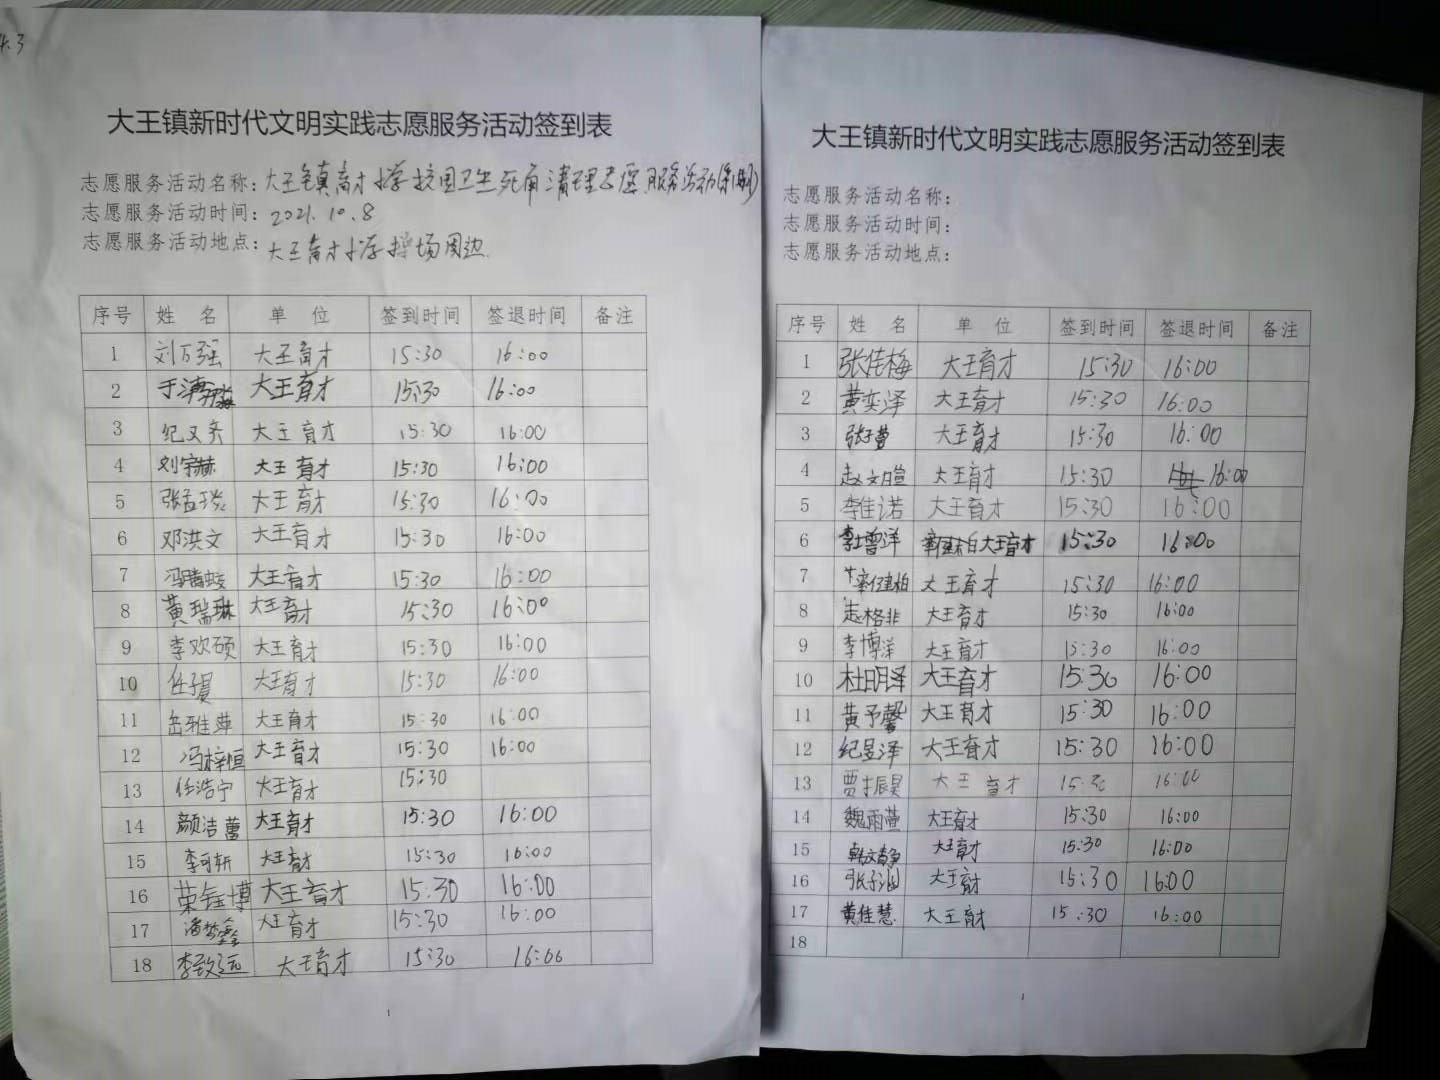 4.3
大王镇新时代文明实践志愿服务活动签到表
志愿服务活动名称：大王镇育才小学校园卫生死角清理志愿服务活动
志愿服务活动时间：2021.10.8
志愿服务活动地点：大王育才小学操场周边
序号 姓 名 单 位 签到时间 签退时间 备注
1 刘万强 大王育才 15:30 16:00
2 大王育才 15:30 16:00
3 纪又齐 大王育才 15:30 16:00
4 刘宇赫 大王育才 15:30 16:00
5 大王育才 15:30 16:00
6 邓洪文 大王育才 15:30 16:00
7 大王育才 15:30 16:00
8 黄瑞琳 大王育才 15:30 16:00
9 李欢硕 大王育才 15:30 16:00
10 任子昊 大王育才 15:30 16:00
11 岳雅萍 大王育才 15:30 16:00
12 冯梓恒 大王育才 15:30 16:00
13 任浩宁 大王育才 15:30
14 颜洁蕾 大王育才 15:30 16:00
15 李可轩 大王育才 15:30 16:00
16 荣钰博 大王育才 15:30 16:00
17 潘梦鑫 大王育才 15:30 16:00
18 李致远 大王育才 15:30 16:00
1
大王镇新时代文明实践志愿服务活动签到表
志愿服务活动名称：
志愿服务活动时间：
志愿服务活动地点：
序号 姓 名 单 位 签到时间 签退时间 备注
1 张佳梅 大王育才 15:30 16:00
2 黄奕泽 大王育才 15:30 16:00
3 大王育才 15:30 16:00
4 赵文暄 大王育才 15:30 16:00
5 李佳诺 大王育才 15:30 16:00
6 大王育才 15:30 16:00
7 大王育才 15:30 16:00
8 大王育才 15:30 16:00
9 李博洋 大王育才 15:30 16:00
10 杜明泽 大王育才 15:30 16:00
11 黄予馨 大王育才 15:30 16:00
12 纪昱泽 大王育才 15:30 16:00
13 贾振昊 大王育才 15:30 16:00
14 魏雨萱 大王育才 15:30 16:00
15 大王育才 15:30 16:00
16 张子涵 大王育才 15:30 16:00
17 黄佳慧 大王育才 15:30 16:00
18
1